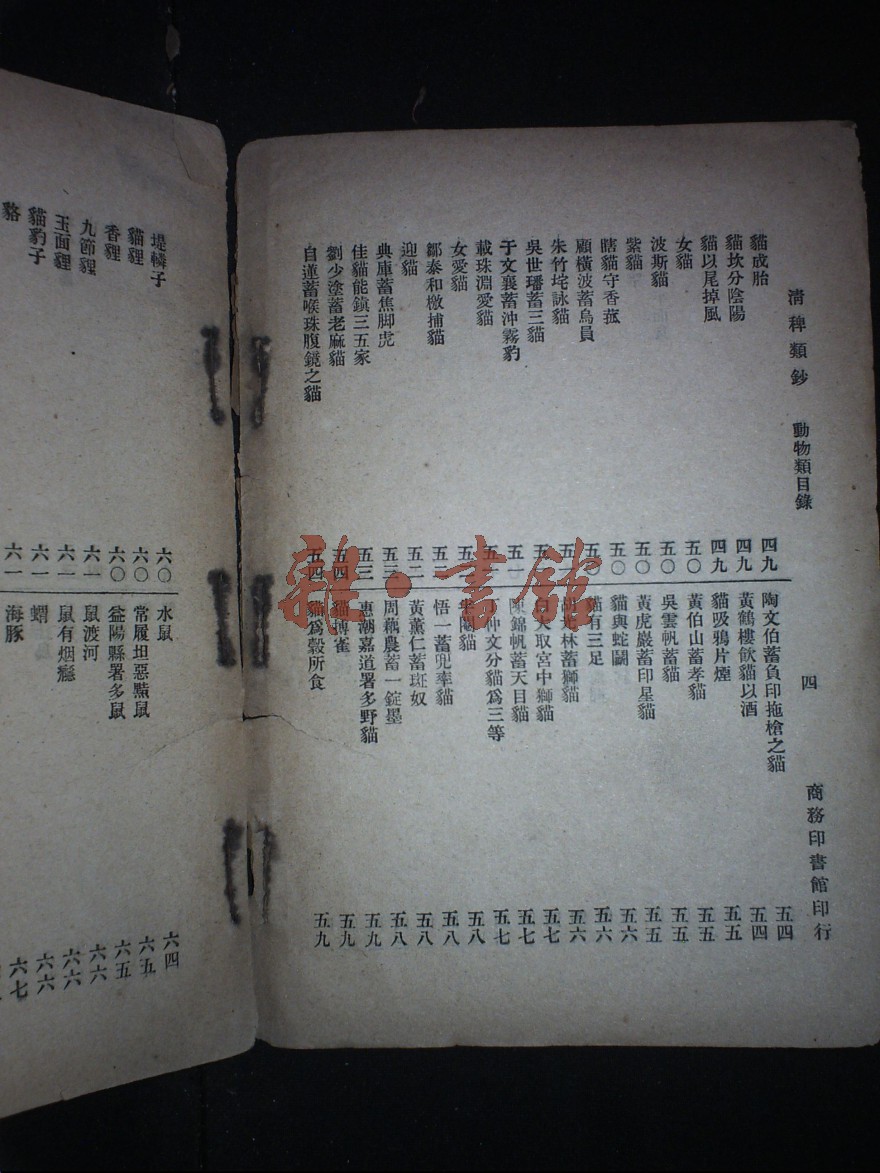 清稗類鈔 動物類目錄 四 商務印書館印行
貓成胎 四九
貓坎分陰陽 四九
貓以尾掉風 四九
女貓 五〇
波斯貓 五〇
紫貓 五〇
瞎貓守香菰 五〇
顧橫波蓄烏員 五
朱竹垞詠貓 五
吳世璠蓄三貓 五
于文襄蓄沖霧豹 五
載珠淵愛貓 五
女愛貓 五
鄒泰和檄捕貓 五二
迎貓 五二
典庫蓄焦脚虎 五三
佳貓能鎮三五家 五三
劉少塗蓄老麻貓 五四
自蓮蓄喉珠腹鏡之貓 五四
陶文伯蓄負印拖槍之貓 五四
黃鶴樓飲貓以酒 五四
貓吸鴉片煙 五五
黃伯山蓄孝貓 五五
吳雲帆蓄貓 五五
黃虎巖蓄印星貓 五五
貓與蛇鬭 五六
貓有三足 五六
林蓄獅貓 五六
大取宮中獅貓 五七
陳錦帆蓄天目貓 五七
仲文分貓爲三等 五七
半闌貓 五八
悟一蓄兜率貓 五八
黃薰仁蓄斑奴 五八
周藕農蓄一錠墨 五八
惠潮嘉道署多野貓 五九
貓搏雀 五九
貓爲穀所食 五九
堤轔子 六〇
貓貍 六〇
香貍 六〇
九節貍 六一
玉面貍 六一
貓豹子 六一
貉 六一
水鼠 六四
常履坦惡黠鼠 六五
益陽縣署多鼠 六五
鼠渡河 六六
鼠有烟癮 六六
蝟 六六
海豚 六七
雜·書館